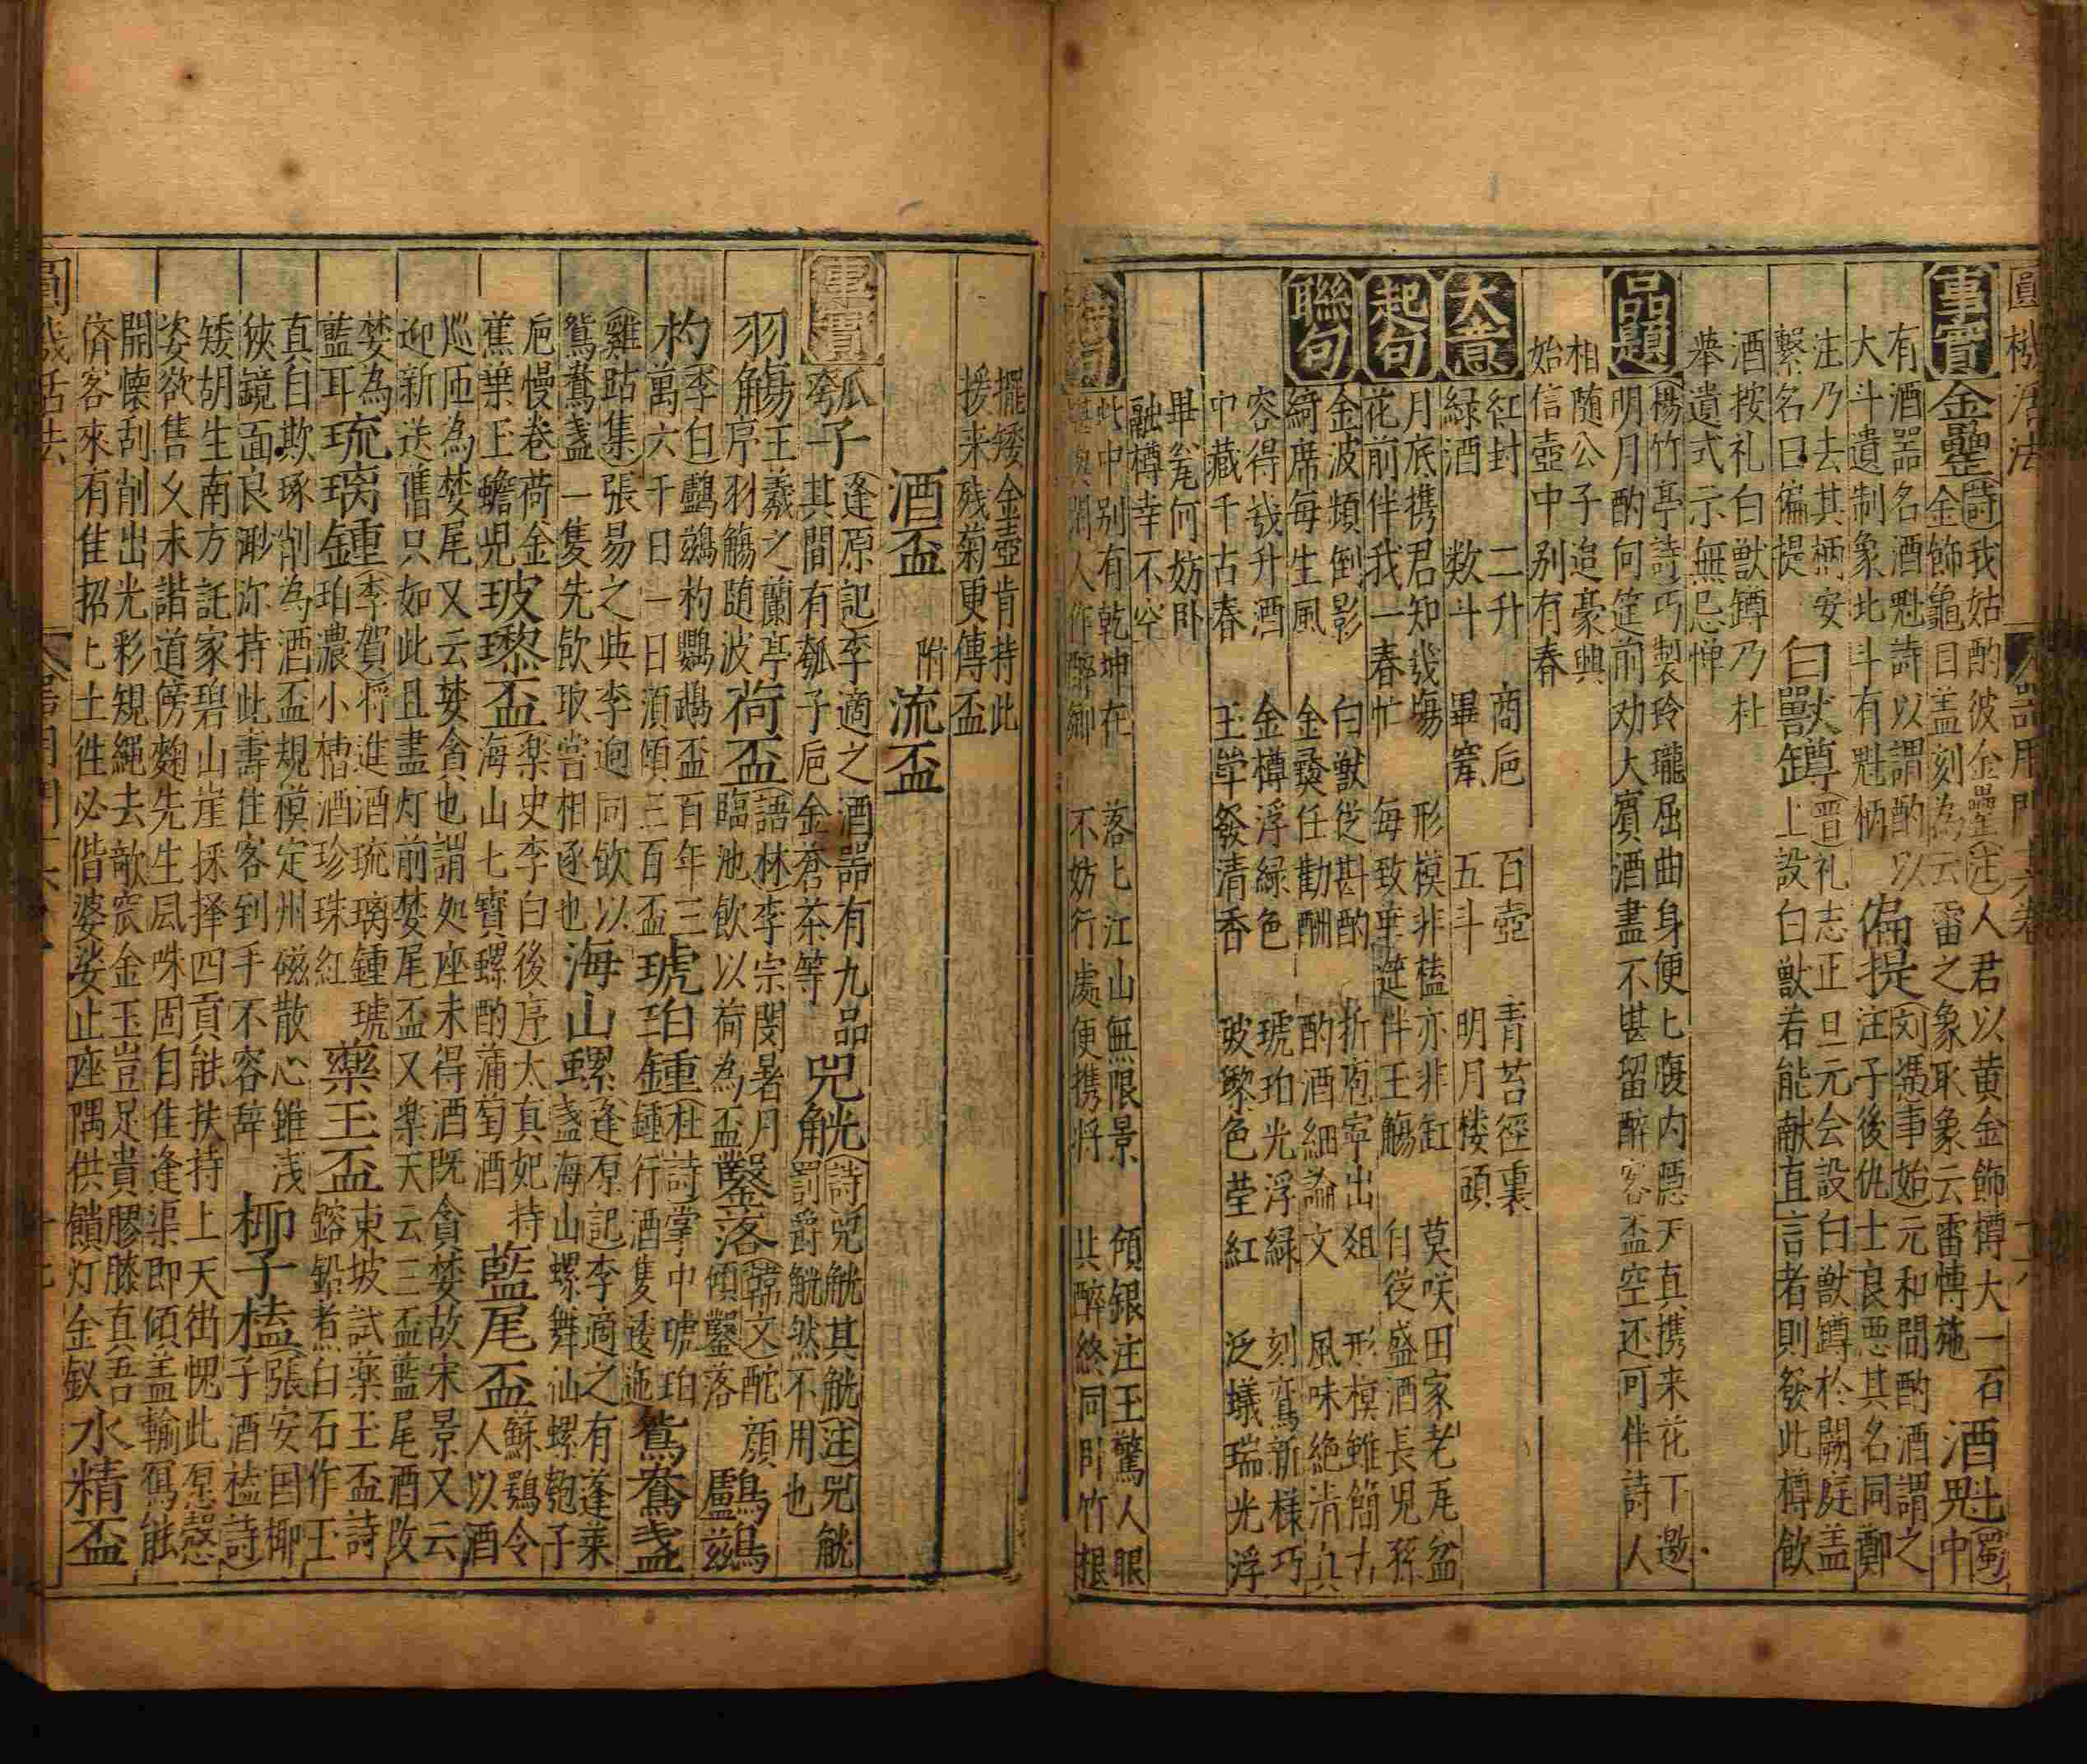 圓機活法　器用門十六卷　十八
事實　金罍
詩　我姑酌彼金罍　注　人君以黄金飾樽大一石
金飾龜目盖刻為云雷之象取象云雷博施
酒魁
蜀中
有酒噐名酒魁詩以謂酌以
大斗遺制象北斗有魁柄
偏提
刘馮事始元和間酌酒謂之
注子後仇士良惡其名同鄭
注乃去其柄安
繋名曰偏提
白獸罇
晋礼志正旦元会設白獸罇於闕庭盖
上設白獸若能献直言者則發此樽飲
酒按礼白獸罇乃杜
舉遺式示無忌憚
品題
楊竹亭詩巧製玲瓏屈曲身便匕腹内隠天真携来花下邀
明月酌向筵前劝大賓酒盡不甚留醉客盃空还可伴詩人
相随公子追豪興
始信壺中别有春
大意
紅封　二升　商巵　百壺　青苔徑裏
綠酒　数斗　畢窂　五斗　明月楼頭
起句
月底携君知幾塲　形模非榼亦非缸　莫咲田家老瓦盆
花前伴我一春忙　每致華筵伴玉觴　自從盛酒長兒孫
聯句
金波頻倒影　白獸從斟酌　折庖寧出俎　形模雖簡古
綺席每生風　金發任勸酬　酌酒細論文　風味絶清真
容得幾升酒　金樽浮綠色　琥珀光浮綠　刻鸞新様巧
中藏千古春　玉斝發清香　玻瓈色莹紅　泛蟻瑞光浮
畢瓮何妨卧
融樽幸不空
此中别有乾坤在　落匕江山無限景　傾銀注玉驚人眼
不妨行處便携将　共醉終同卧竹根
擺矮金壺肯持此
援来残菊更傳盃
酒盃　附　流盃
事實　瓠子
逢原記　李適之酒噐有九品
其間有瓠子巵金蒼茶等
兕觥
詩兕觥其觩　注　兕觥
罰爵觥然不用也
羽觴
王羲之蘭亭
序羽觴随波
荷盃
語林　李宗閔暑月
臨池飲以荷為盃
鑿落
韓文酡顔
傾鑿落
鸕鶿
杓
李白　鸕鶿杓鸚鵡盃百年三
萬六千日一日湏傾三百盃
琥珀鍾
杜詩掌中琥珀
鍾行酒隻逶迤
鴛鴦盞
雞跕集　張易之與李逈同飲以
鴛鴦盞一隻先飲取嘗相逐也
海山螺
逢原記李適之有蓬莱
盞海山螺舞仙螺匏子
巵慢卷荷金
蕉葉玉蟾兒
玻瓈盃
楽史李白後序　太真妃持
海山七寳螺酌蒲萄酒
藍尾盃
蘇鶚令
人以酒
巡匝為婪尾又云婪貪也謂処座未得酒既貪婪故宋景又云
迎新送舊只如此且盡灯前婪尾盃又楽天云三盃藍尾酒改
婪為
藍耳
琉璃鍾
李賀　将進酒琉璃鍾琥
珀濃小槽酒珍珠紅
藥玉盃
東坡試薬玉盃詩
鎔鉛煮白石作玉
真自欺琢削為酒盃規模定州磁散心雖浅
狹鏡面良渺沵持此壽佳客到手不容辞
椰子榼
張安国椰
子酒榼詩
矮胡生南方託家碧山崖採择四貢能扶持上天街愧此愿慤
姿欲售乆未諧道傍麴先生風味固自佳逢渠即傾盖輸寫能
開懐刮削出光彩規繩去敵窊金玉豈足貴膠膝真吾
儕客來有佳招匕土徃必偕婆娑止座隅供饋灯金釵
水精盃